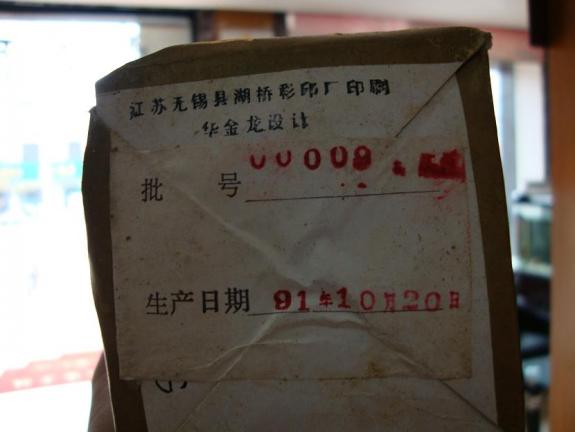 江苏无锡县湖桥彩印厂印刷
华金龙设计
批 号 00009
生产日期 91年10月20日